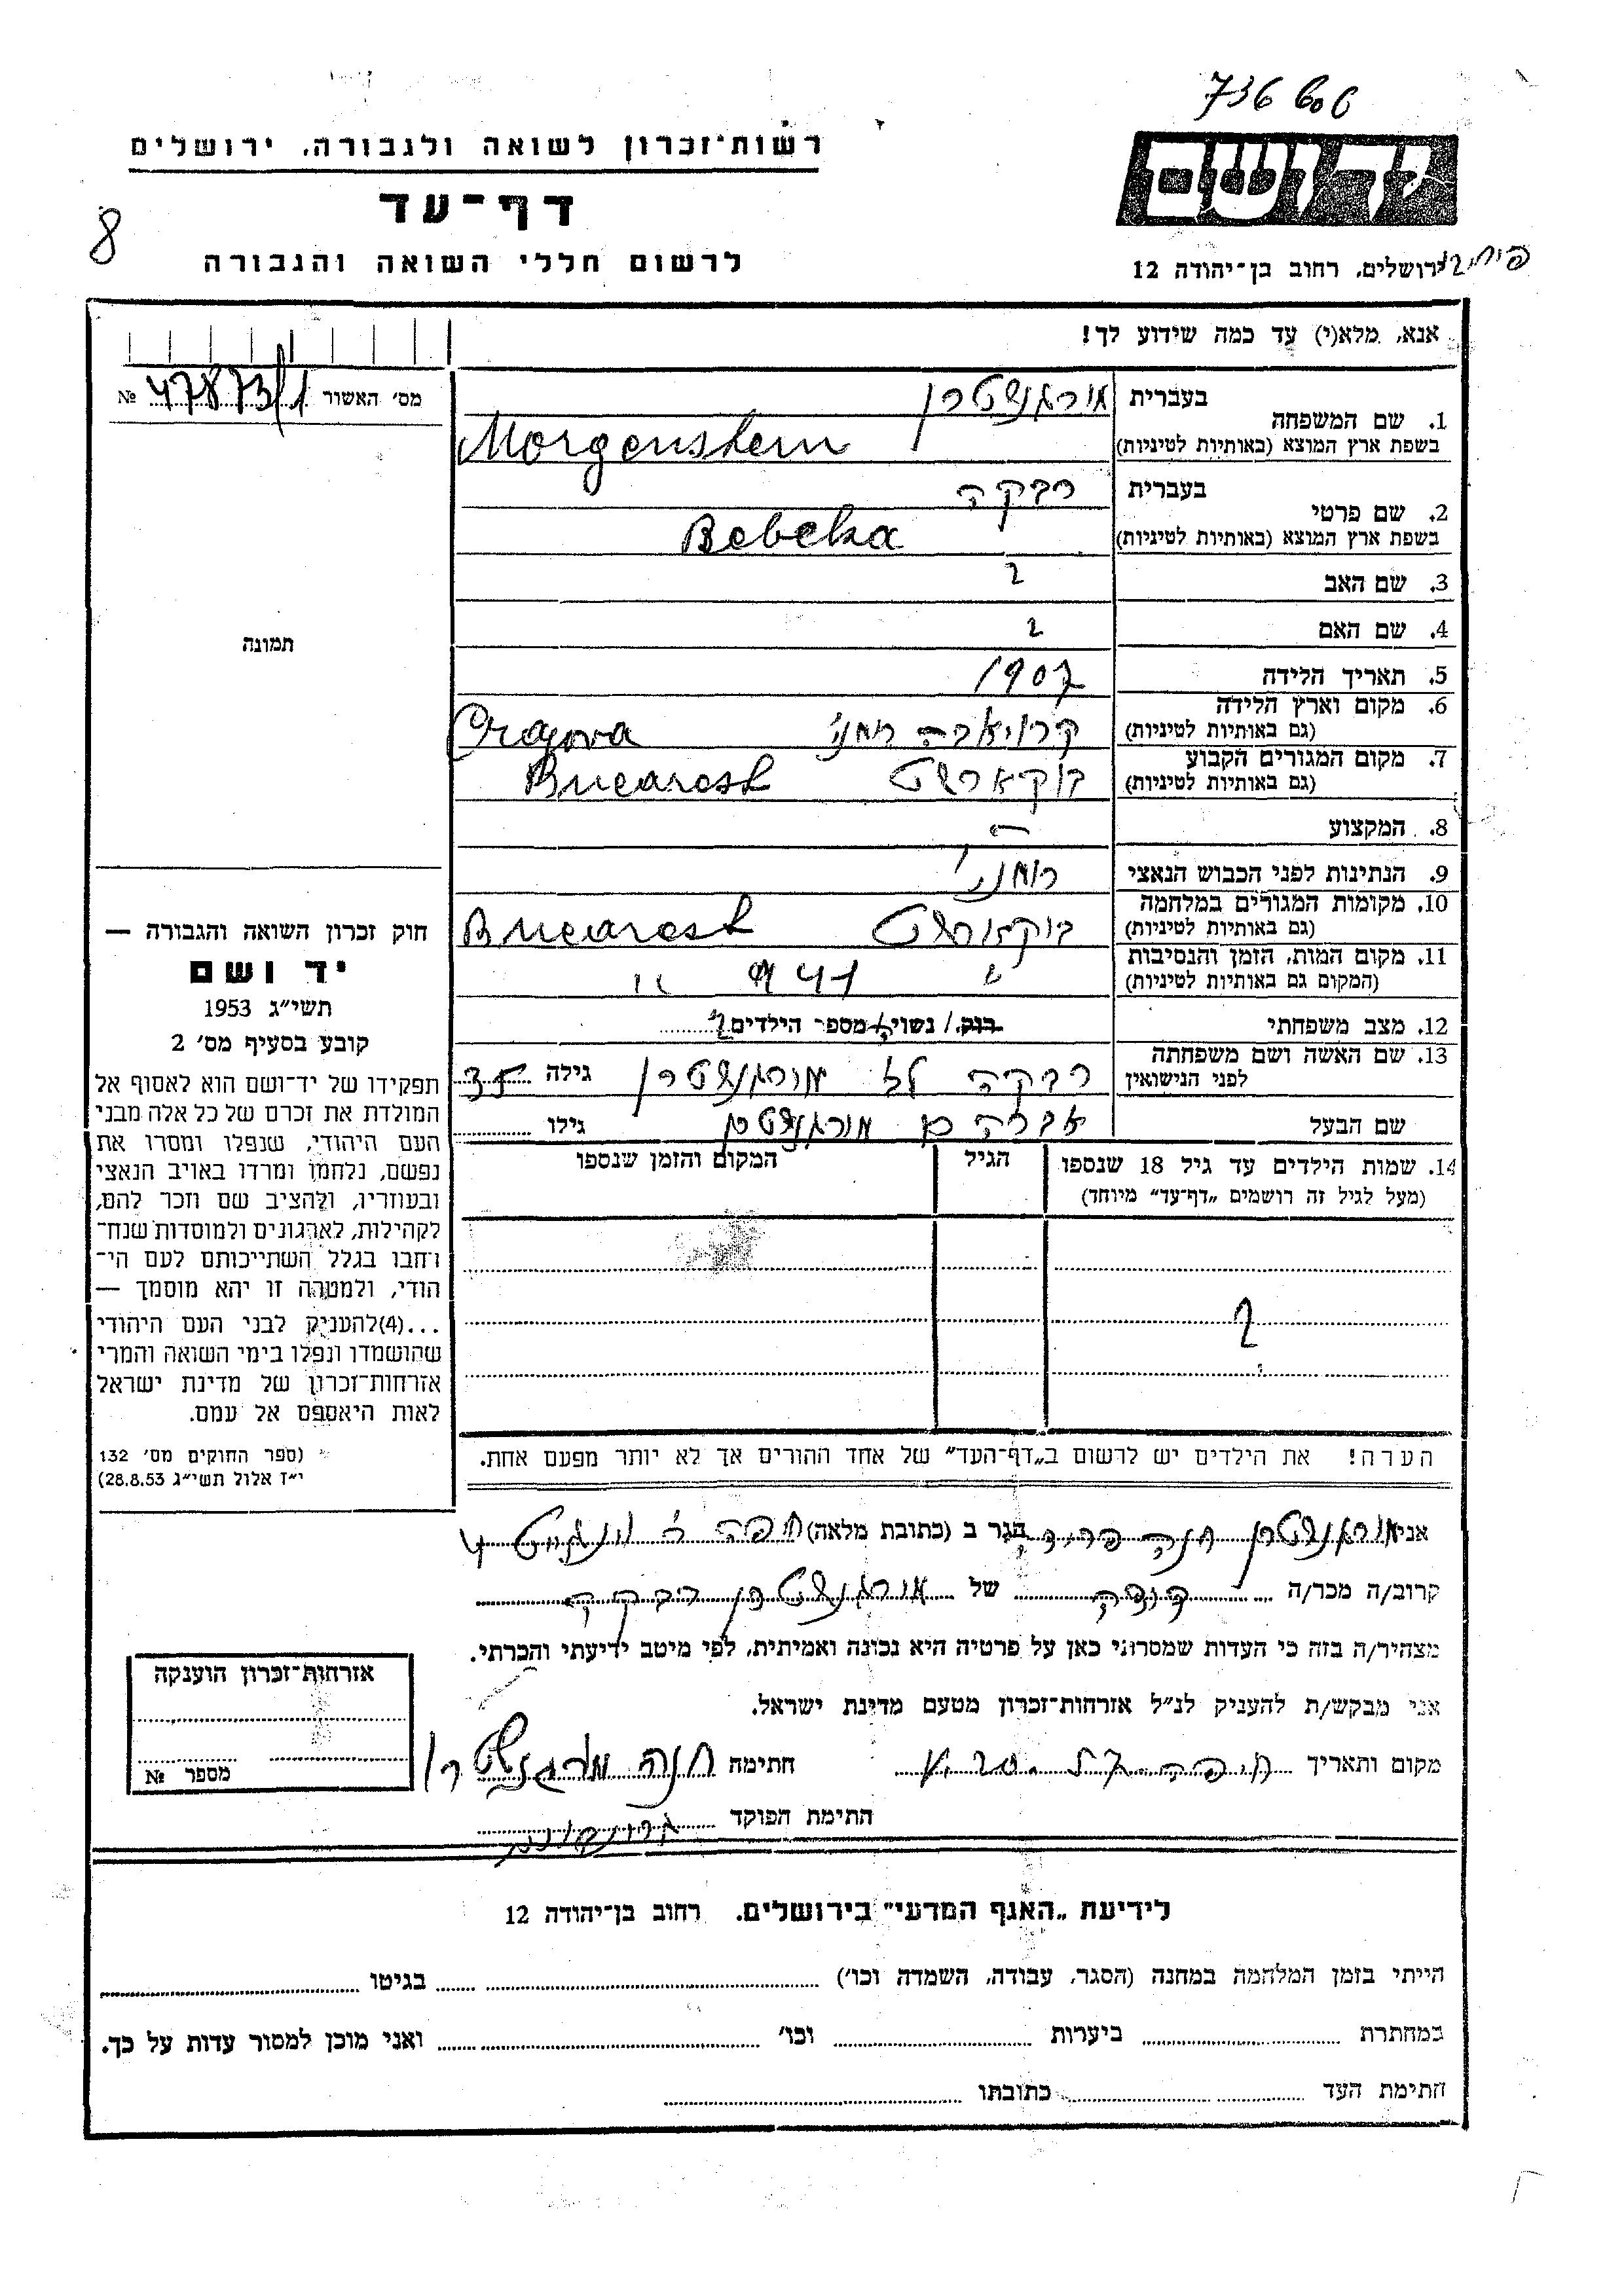 736 606
רשות־זכרון לשואה ולגבורה, ירושלים
יד ושם
דף־עד
8
לרשום חללי השואה והגבורה
ירושלים, רחוב בן־יהודה 12
אנא, מלא(י) עד כמה שידוע לך!
מס׳ האשור 47873/1 №
1. שם המשפחה
בעברית מורגנשטרן
בשפת ארץ המוצא (באותיות לטיניות) Morgenstern
2. שם פרטי
בעברית רבקה
בשפת ארץ המוצא (באותיות לטיניות) Rebeka
3. שם האב ?
4. שם האם ?
תמונה
5. תאריך הלידה 1907
6. מקום וארץ הלידה
(גם באותיות לטיניות) רומני׳ Crajova
7. מקום המגורים הקבוע
(גם באותיות לטיניות) בוקארשט Bucarest
8. המקצוע —
9. הנתינות לפני הכבוש הנאצי רומני׳
10. מקומות המגורים במלחמה
(גם באותיות לטיניות) בוקארשט Bucarest
11. מקום המות, הזמן והנסיבות
(המקום גם באותיות לטיניות) " 1941 "
12. מצב משפחתי רוק / נשוי/אה מספר הילדים ?
13. שם האשה ושם משפחתה
לפני הנישואין רבקה מורגנשטרן גילה 35
שם הבעל אברהם מורגנשטרן גילו
14. שמות הילדים עד גיל 18 שנספו
(מעל לגיל זה רושמים „דף־עד״ מיוחד)
הגיל
המקום והזמן שנספו
?
חוק זכרון השואה והגבורה —
יד ושם
תשי״ג 1953
קובע בסעיף מס׳ 2
תפקידו של יד־ושם הוא לאסוף אל
המולדת את זכרם של כל אלה מבני
העם היהודי, שנפלו ומסרו את
נפשם, נלחמו ומרדו באויב הנאצי
ובעוזריו, ולהציב שם וזכר להם,
לקהילות, לארגונים ולמוסדות שנח־
רחבו בגלל השתייכותם לעם הי־
הודי, ולמטרה זו יהא מוסמך —
...(4)להעניק לבני העם היהודי
שהושמדו ונפלו בימי השואה והמרי
אזרחות־זכרון של מדינת ישראל
לאות היאספם אל עמם.
(ספר החוקים מס׳ 132
י״ז אלול תשי״ג 28.8.53)
הערה! את הילדים יש לרשום ב„דף־העד״ של אחד ההורים אך לא יותר מפעם אחת.
אני מורגנשטרן חנה פרידה הגר ב (כתובת מלאה) חיפה
קרוב/ה מכר/ה דודה של מורגנשטרן רבקה
מצהיר/ה בזה כי העדות שמסרתי כאן על פרטיה היא נכונה ואמיתית, לפי מיטב ידיעתי והכרתי.
אני מבקש/ת להעניק לנ״ל אזרחות־זכרון מטעם מדינת ישראל.
מקום ותאריך חיפה חתימה חנה מורגנשטרן
חתימת הפוקד
אזרחות־זכרון הוענקה
מספר №
לידיעת „האגף המדעי״ בירושלים. רחוב בן־יהודה 12
הייתי בזמן המלחמה במחנה (הסגר, עבודה, השמדה וכו׳) בגיטו
במחתרת ביערות וכו׳ ואני מוכן למסור עדות על כך.
חתימת העד כתובתו